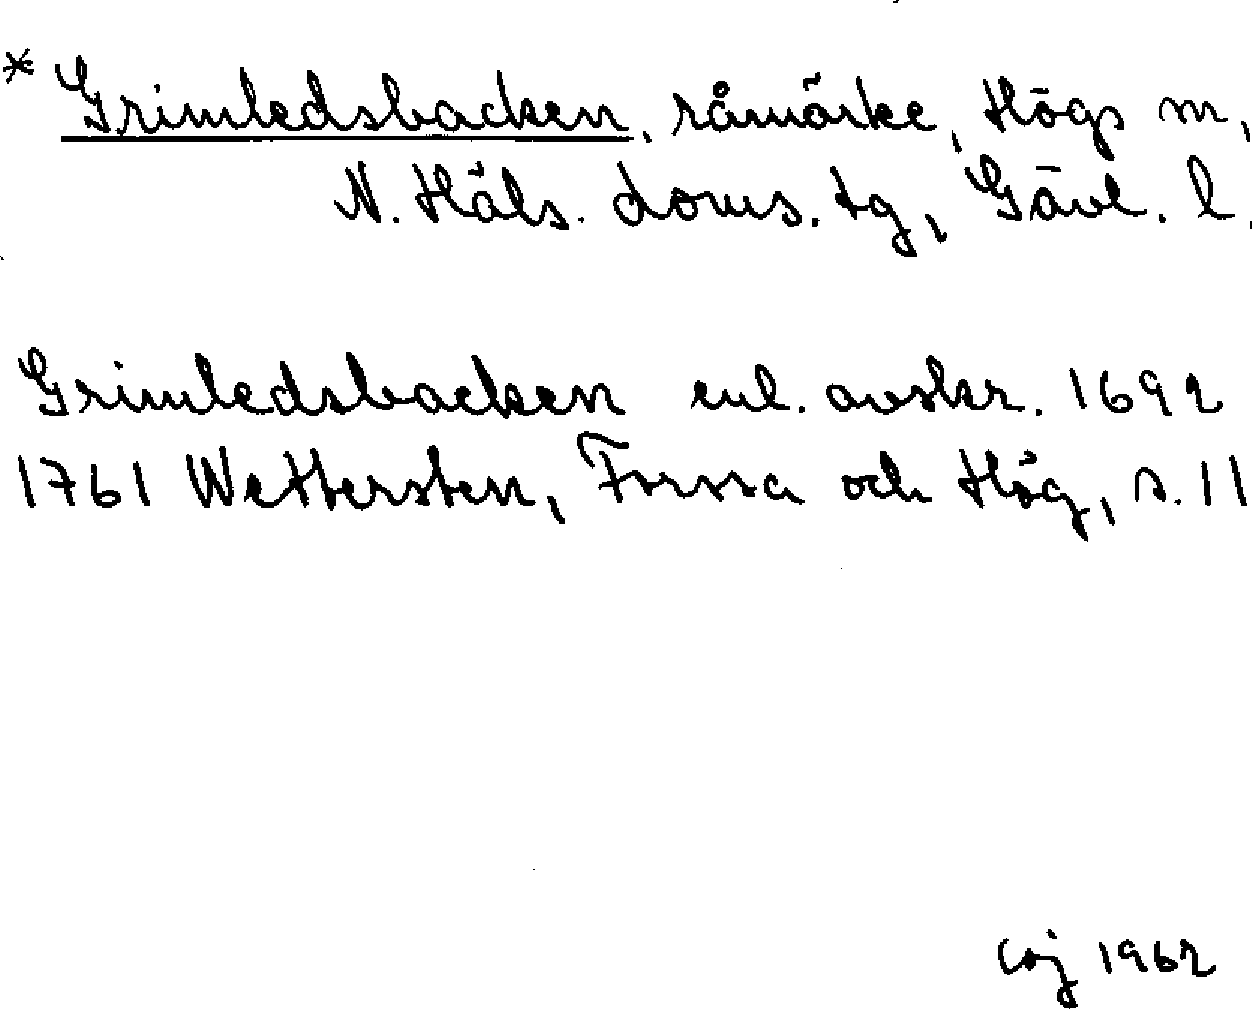 * Grimledsbacken, råmärke, Högs sn,
N. Häls. doms. tg, Gävl. l.
Grimledsbacken enl. avskr. 1692
1761 Wettersten, Forssa och Hög, s. 11
1962